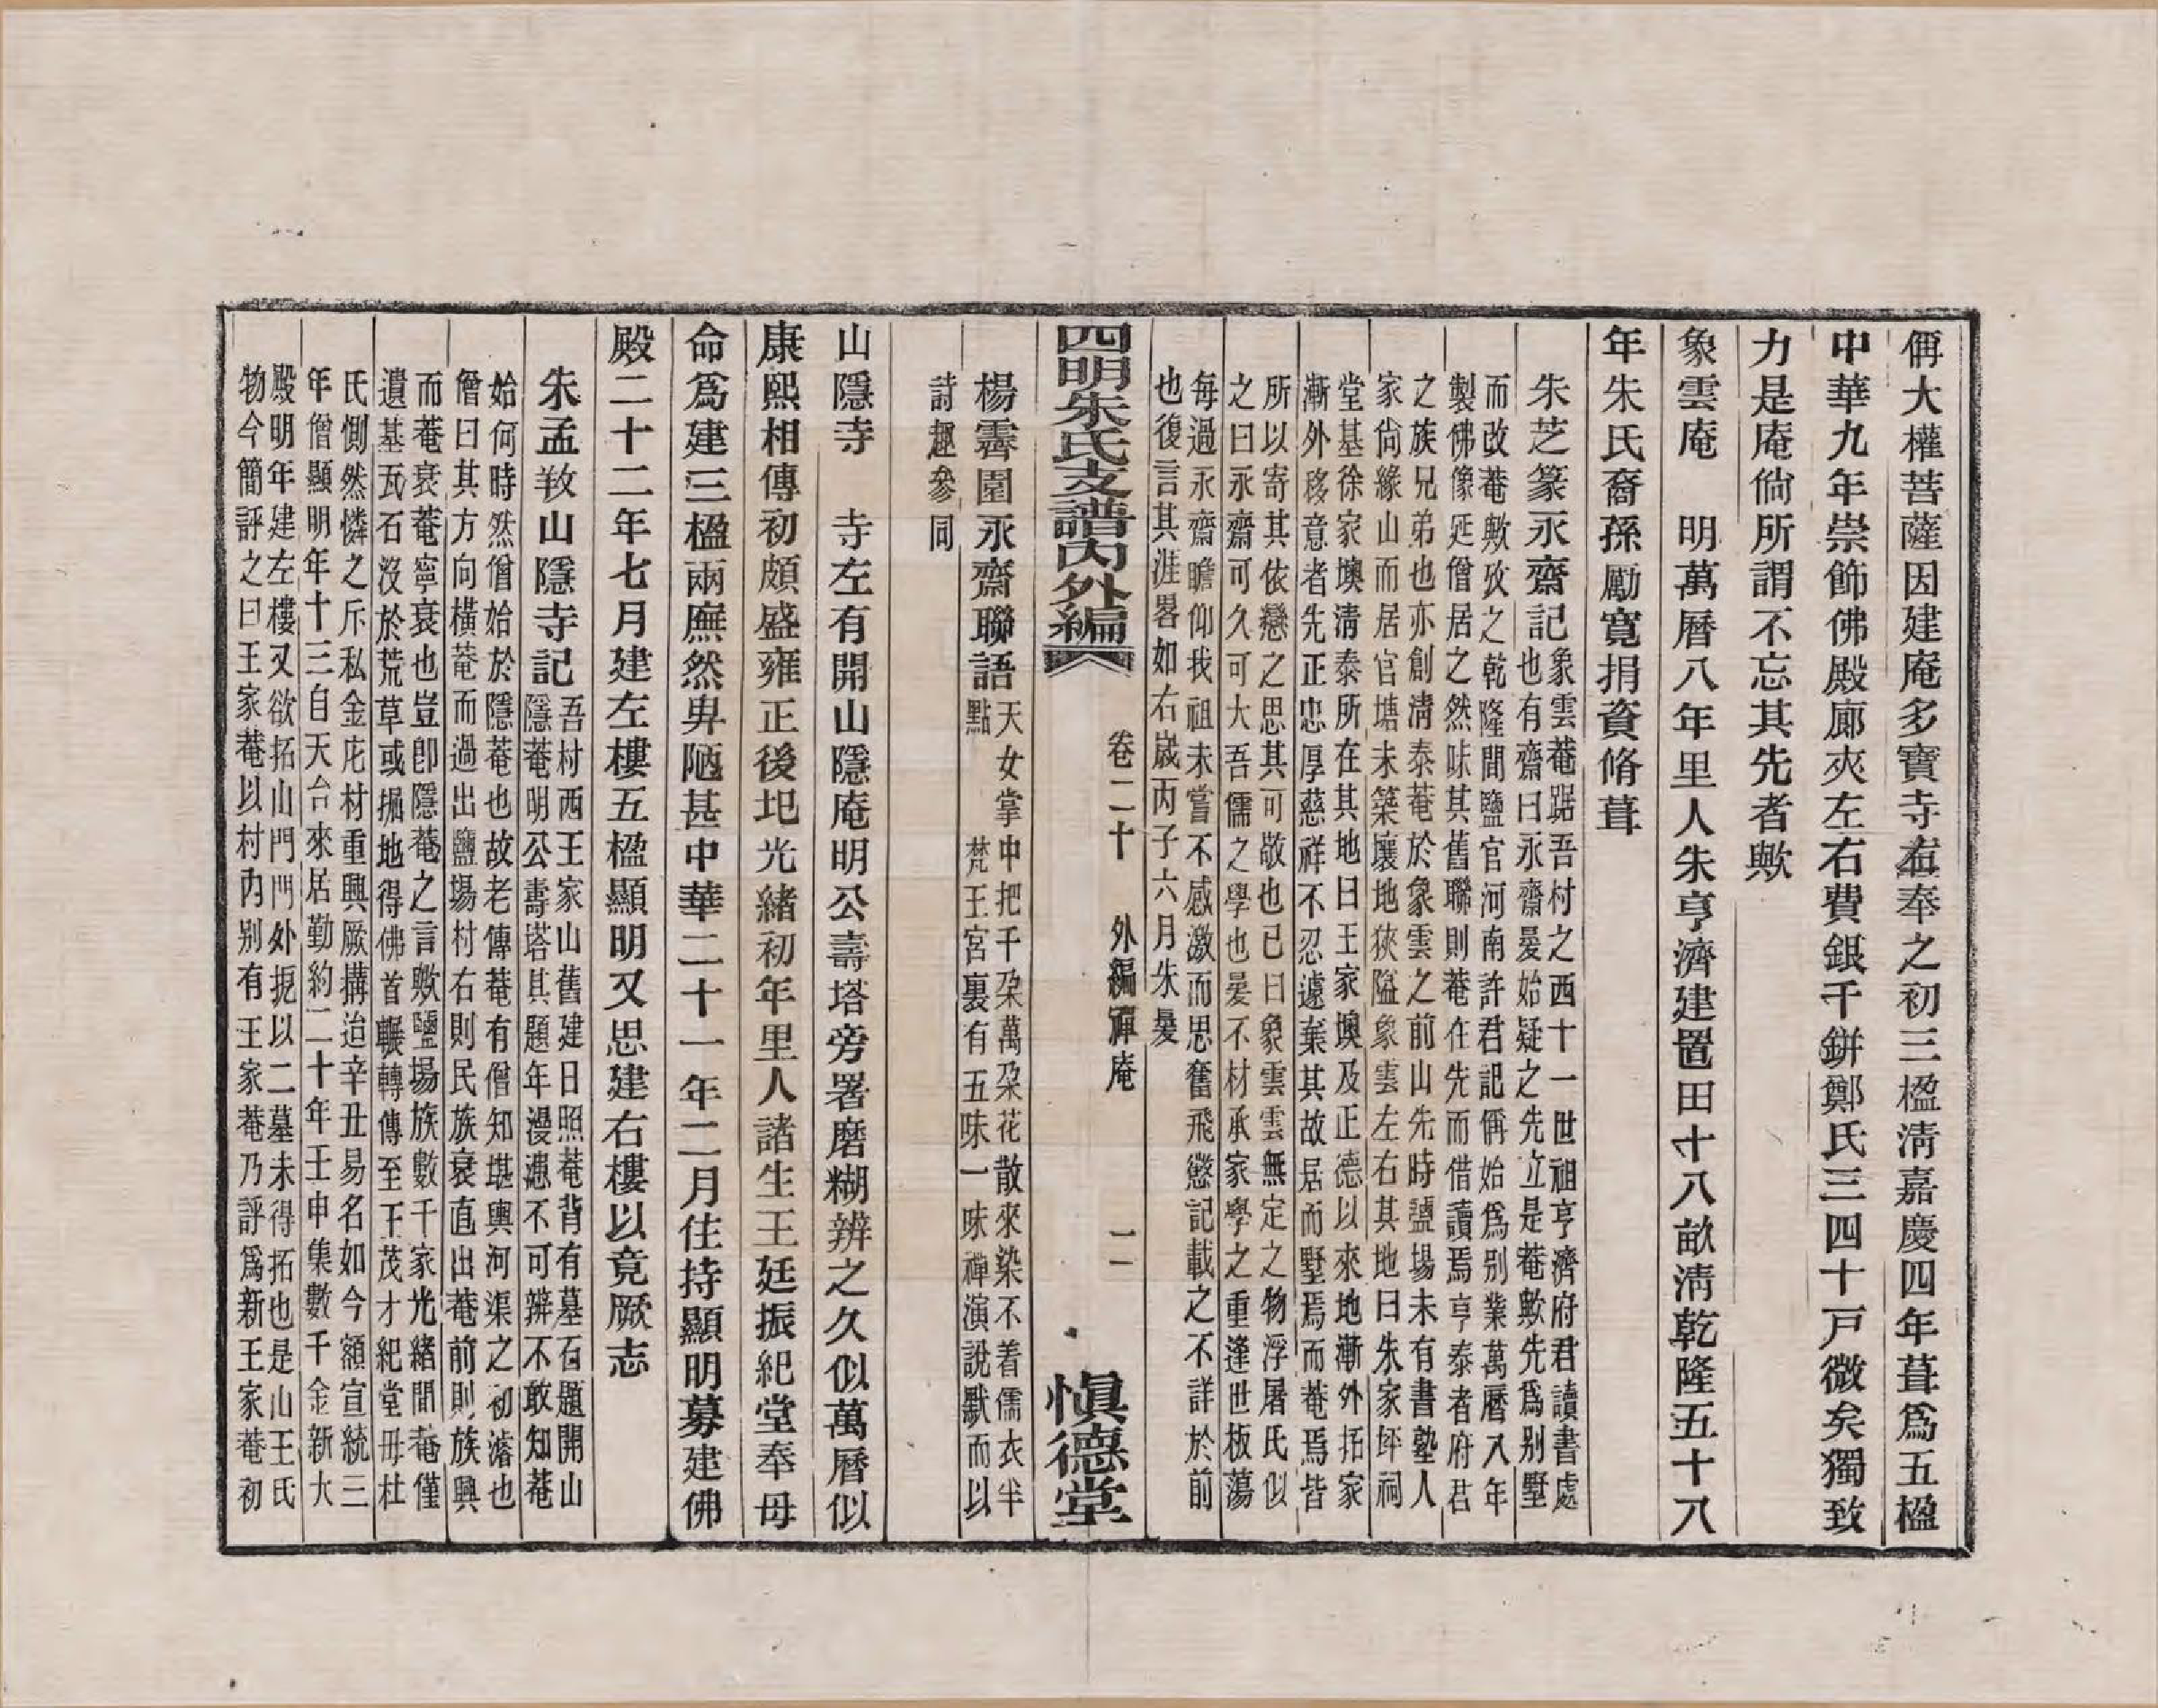 偁大權菩薩因建庵多寶寺右奉之初三楹淸嘉慶四年葺爲五楹
中華九年崇飾佛殿廊夾左右費銀千餠鄭氏三四十戸微矣獨致
力是庵倘所謂不忘其先者歟
象雲庵　明萬曆八年里人朱亨濟建置田十八畝淸乾隆五十八
年朱氏裔孫勵寬捐資脩葺
朱芝篆永齋記
象雲菴踞吾村之西十一世祖亨濟府君讀書處
也有齋曰永齋㬅始疑之先立是菴歟先爲别墅
而改菴歟攷之乾隆間鹽官河南許君記偁始爲别業萬曆八年
製佛像延僧居之然味其舊聯則菴在先而借讀焉亨泰者府君
之族兄弟也亦創淸泰菴於象雲之前山先時鹽場未有書塾人
家倘緣山而居官塘未築壤地狹隘象雲左右其地曰朱家坪祠
堂基徐家墺清泰所在其地曰王家墺及正德以來地漸外拓家
漸外移意者先正忠厚慈祥不忍遽棄其故居而墅焉而菴焉皆
所以寄其依戀之思其可敬也已曰象雲雲無定之物浮屠氏似
之曰永齋可久可大吾儒之學也㬅不材承家學之重逢世板蕩
每過永齋瞻仰我祖未嘗不感激而思奮飛懲記載之不詳於前
也復言其涯畧如右歲丙子六月朱㬅
四明朱氏支譜內外編　卷二十　外編禪庵　二　愼德堂
楊霽園永齋聯語
天女掌中把千朶萬朶花散來染不着儒衣半
點　　　梵王宮裏有五味一味禪演說默而以
詩趣參同
山隱寺　寺左有開山隱庵明公壽塔旁署磨糊辨之久似萬曆似
康熙相傳初頗盛雍正後圯光緒初年里人諸生王廷振紀堂奉母
命爲建三楹兩廡然卑陋甚中華二十一年二月住持顯明募建佛
殿二十二年七月建左樓五楹顯明又思建右樓以竟厥志
朱孟敉山隱寺記
吾村西王家山舊建日照菴背有墓石題開山
隱菴明公壽塔其題年漫漶不可辨不敢知菴
始何時然僧始於隱菴也故老傳菴有僧知堪輿河渠之初濬也
僧曰其方向橫菴而過出鹽場村右則民族衰直出菴前則族興
而菴衰菴寧衰也豈卽隱菴之言歟鹽場族數千家光緒間菴僅
遺基瓦石沒於荒草或掘地得佛首輾轉傳至王茂才紀堂毋杜
氏惻然憐之斥私金庀材重興厥搆迨辛丑易名如今額宣統三
年僧顯明年十三自天台來居勤約二十年壬申集數千金新大
殿明年建左樓又欲拓山門門外扼以二墓未得拓也是山王氏
物今簡評之曰王家菴以村內别有王家菴乃評爲新王家菴初